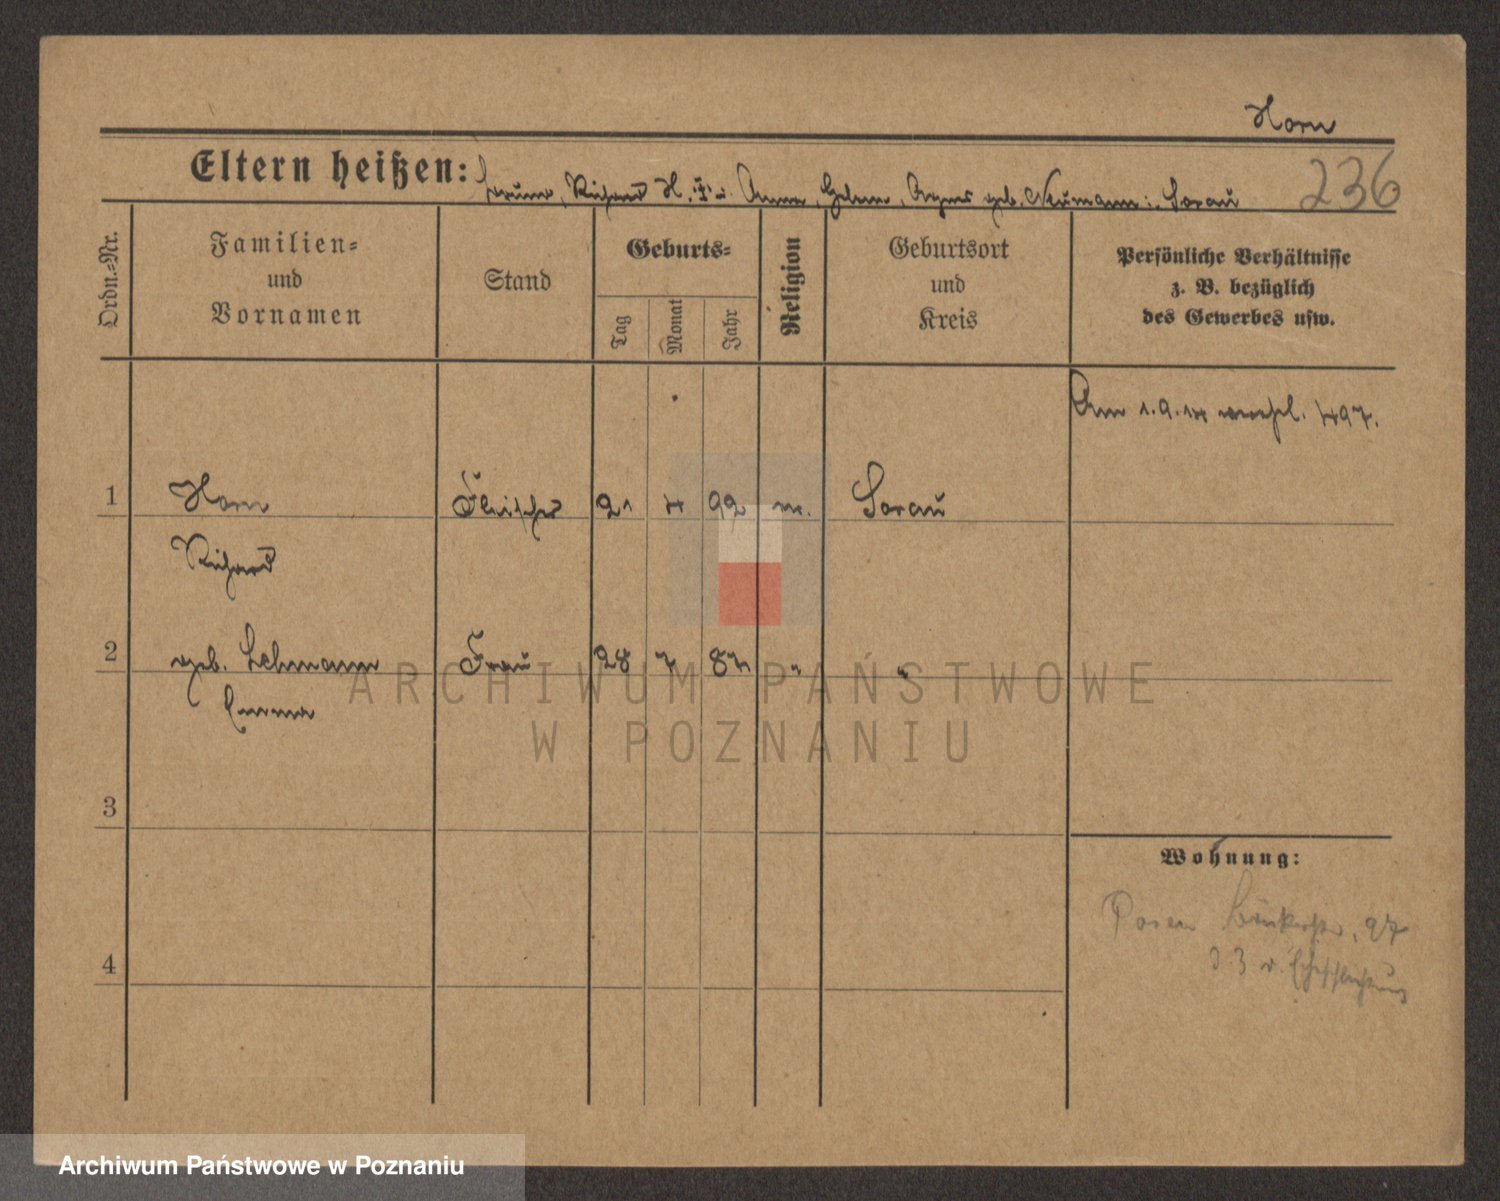 Horn
Eltern heißen: Bruno, Richard H. u. Anna, Helene, Agnes geb. Neumann : Sorau
236
Ordn.-Nr.
Familien-
und
Vornamen
Stand
Geburts-
Tag
Monat
Jahr
Religion
Geburtsort
und
Kreis
Persönliche Verhältnisse
z. B. bezüglich
des Gewerbes usw.
Am 1.9.14 verehel. 497.
1 Horn Fleischer 21 4 92 ev. Sorau
Richard
2 geb. Lehmann Frau 28 7 87 " "
Emma
3
Wohnung:
Posen 27
4
v. Eheschließung
ARCHIWUM PAŃSTWOWE
W POZNANIU
Archiwum Państwowe w Poznaniu